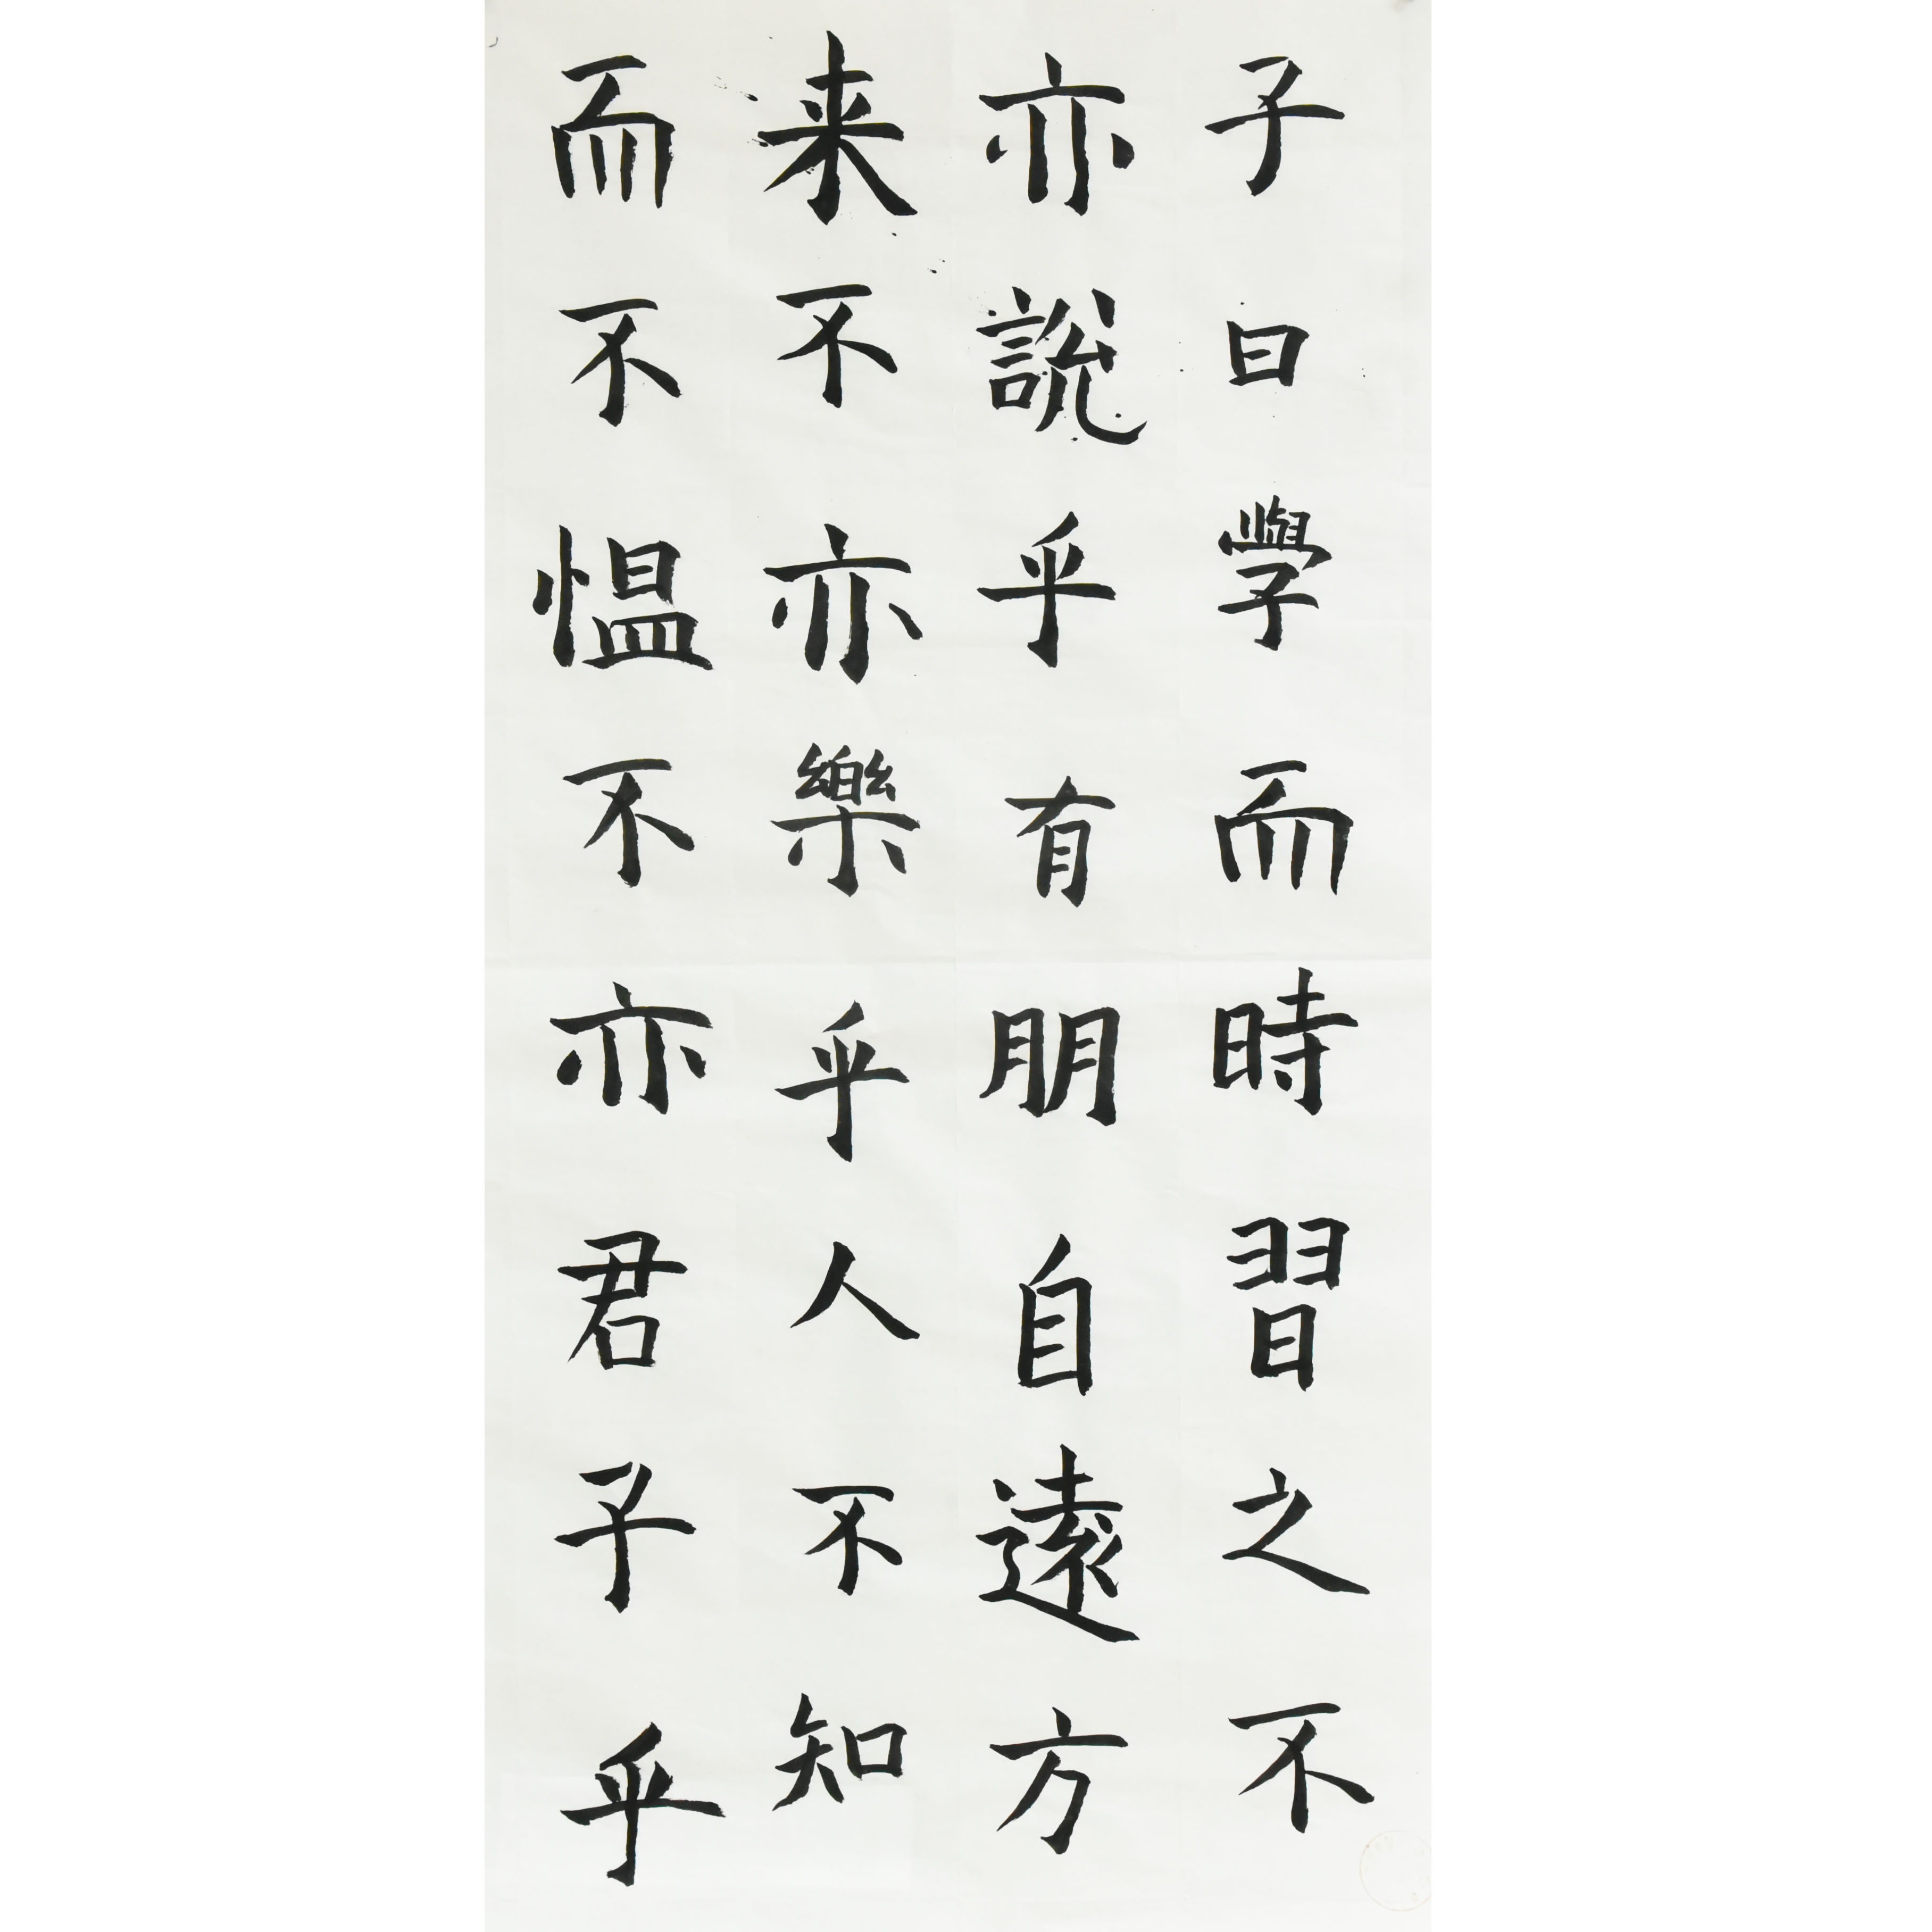 子曰學而時習之不
亦說乎有朋自遠方
来不亦樂乎人不知
而不愠不亦君子乎